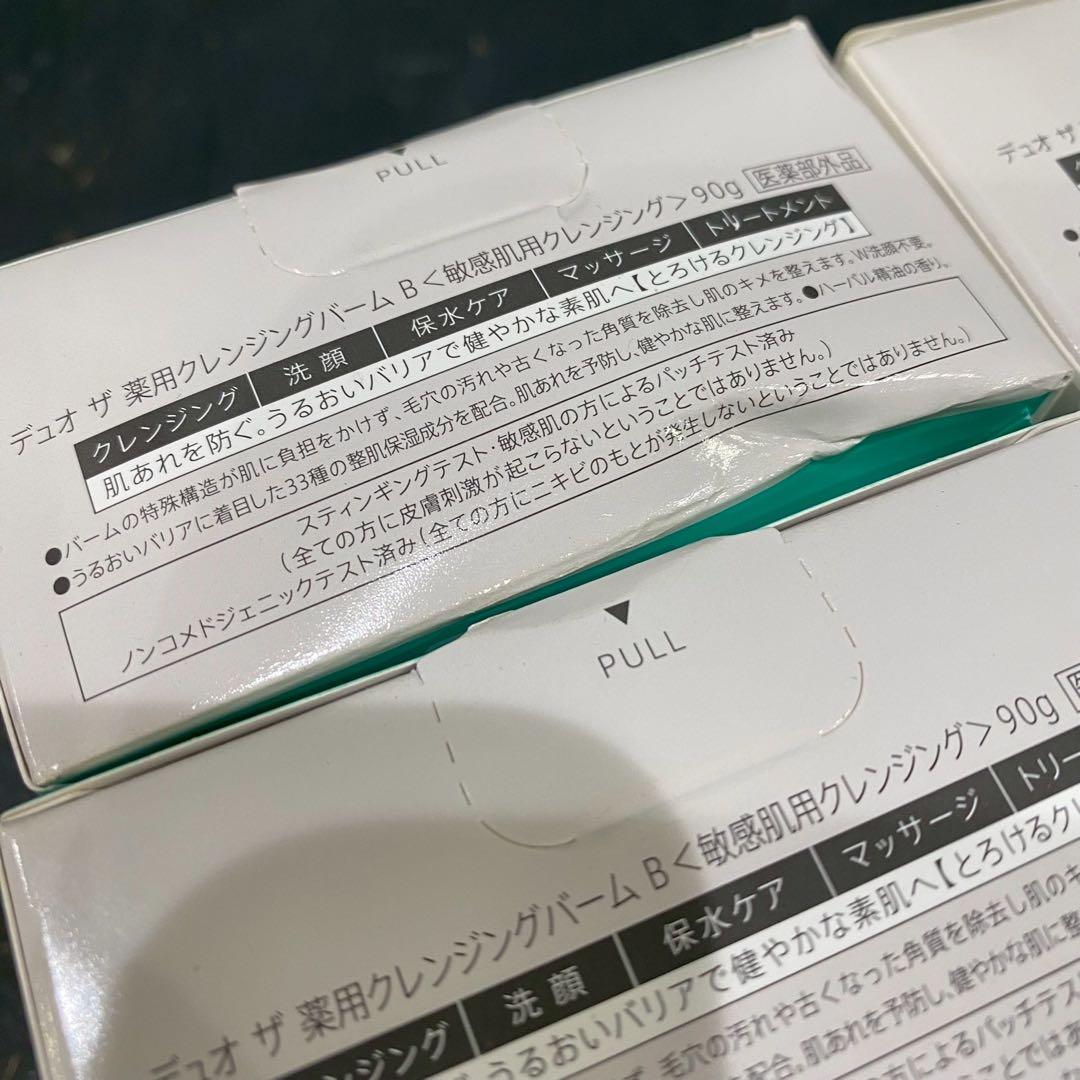 PULL
デュオ ザ 薬用クレンジングバーム B＜敏感肌用クレンジング＞90g 医薬部外品
クレンジング 洗顔 保水ケア マッサージ トリートメント
肌あれを防ぐ。うるおいバリアで健やかな素肌へ【とろけるクレンジング】
●バームの特殊構造が肌に負担をかけず、毛穴の汚れや古くなった角質を除去し肌のキメを整えます。W洗顔不要。
●うるおいバリアに着目した33種の整肌保湿成分を配合。肌あれを予防し、健やかな肌に整えます。●ハーバル精油の香り。
スティンギングテスト・敏感肌の方によるパッチテスト済み
(全ての方に皮膚刺激が起こらないということではありません。)
ノンコメドジェニックテスト済み(全ての方にニキビのもとが発生しないということではありません。)
デュオ ザ
PULL
デュオ ザ 薬用クレンジングバーム B＜敏感肌用クレンジング＞90g 医
ンジング 洗顔 保水ケア マッサージ トリー
うるおいバリアで健やかな素肌へ【とろけるク
毛穴の汚れや古くなった角質を除去し肌のキ
配合。肌あれを予防し、健やかな肌に整
方によるパッチテス
ことではあ